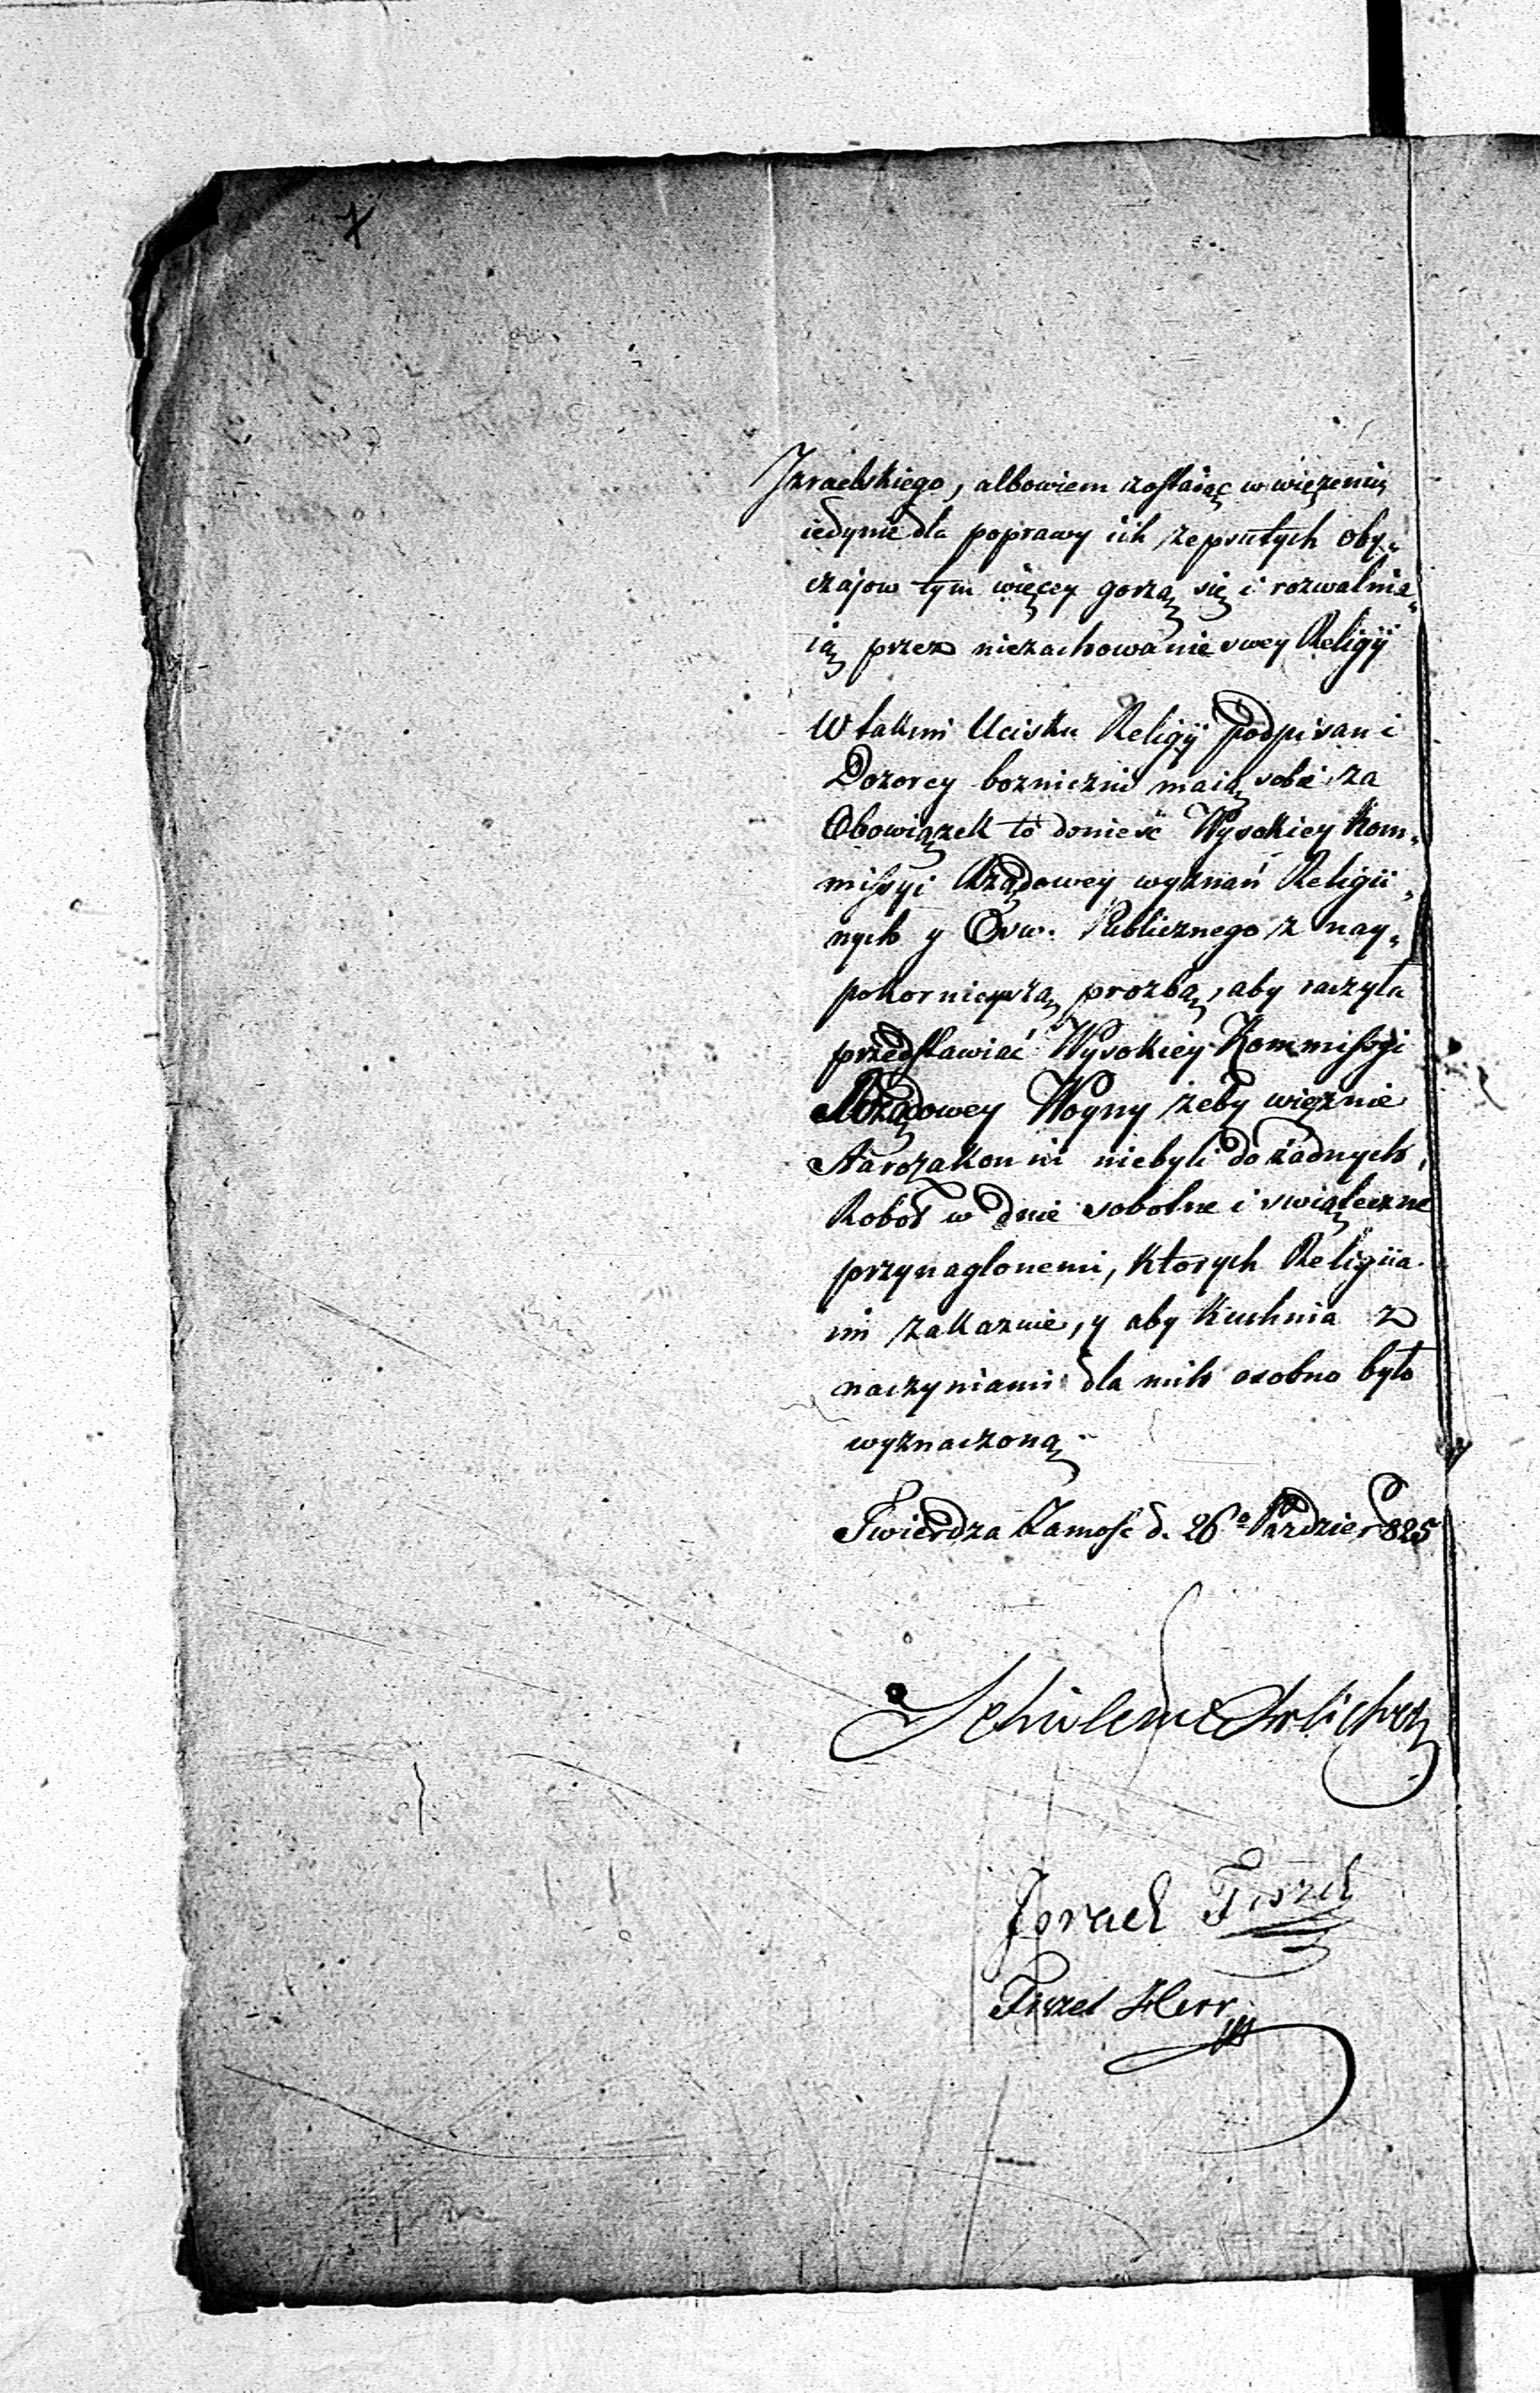 Izraelskiego, albowiem zostaiąc w więzeniu
iedynie dla poprawy ich zepsutych oby„
czajow tym więcey gorzą się i rozwalnia„
ią przez niezachowanie swey Religÿ
W takim Ucisku Religÿ podpisani
Dozorcy boznicznі maią sobie za
Obowiązek to donieść Wysokiey Kom„
missyi Rządowey wyznań Religii„
nych y Osw. Publicznego z nay„
pokornieyszą prozbą, aby raczyła
przedstawiać Wysokiey Kommissyi
Rządowey Woyny żeby więznie
Starozakonni niebyli do żadnych
Robot w dnie sobotne i swiąteczne
przynaglonemi, ktorych Religiia
im zakazuie, y aby Kuchnia z
naczyniami dla nich osobno było
wyznaczoną
Twierdza Zamość d. 26º Paździer 825
Israel Fiszel
Fiszel Herr